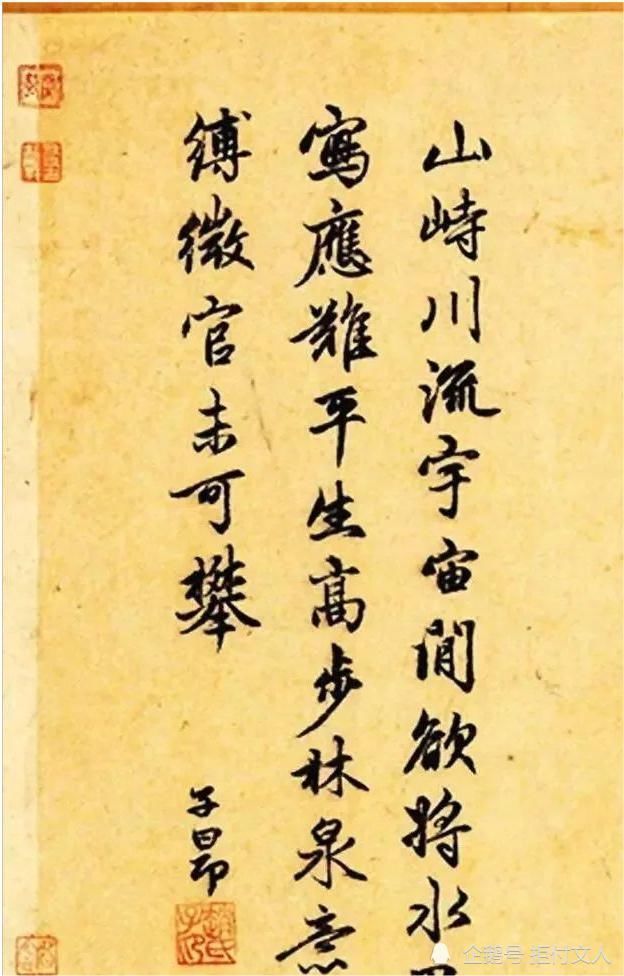 山峙川流宇宙間欲將水
寫應難平生高步林泉意
縛微官未可攀
子昂
趙氏子昂
企鹅号 拒付文人